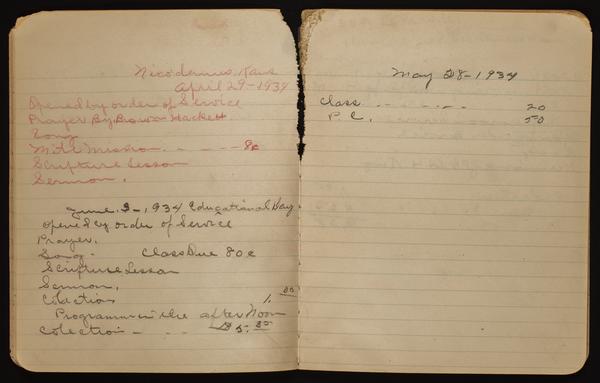 Nicodemus, Kans
April 29-1934
Opened by order of Service
Prayer By Brown Hackett
Song
Mite Mission. - - - - 8c
Scripture Lesson
Sermon.
June. 3-, 1934 Educational Day
opened by order of Service
Prayer.
Song. Class Due 80c
Scripture Lessan
Sermon.
Colection 1.00
Programm in the after Noon
Colection - - - - $5.35
May 28-1934
Class - - - - - 20
P. C. 50